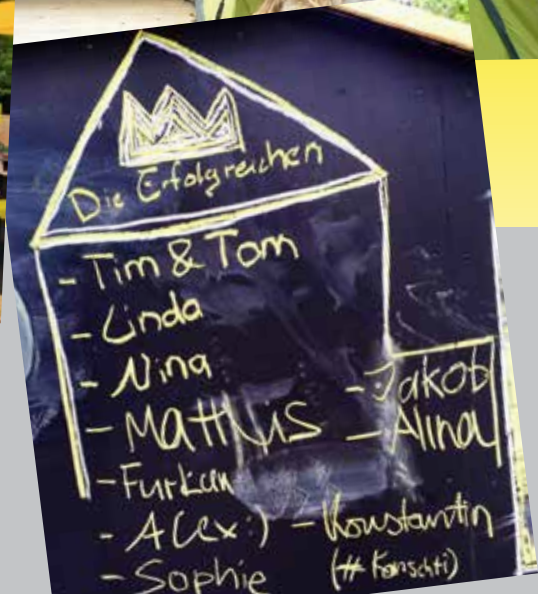 Die Erfolgreichen
- Tim & Tom
- Linda
- Nina
- Matthis
- Furkan
- Alex :)
- Sophie
- Jakob
- Alina
- Konstantin
(# Konschti)